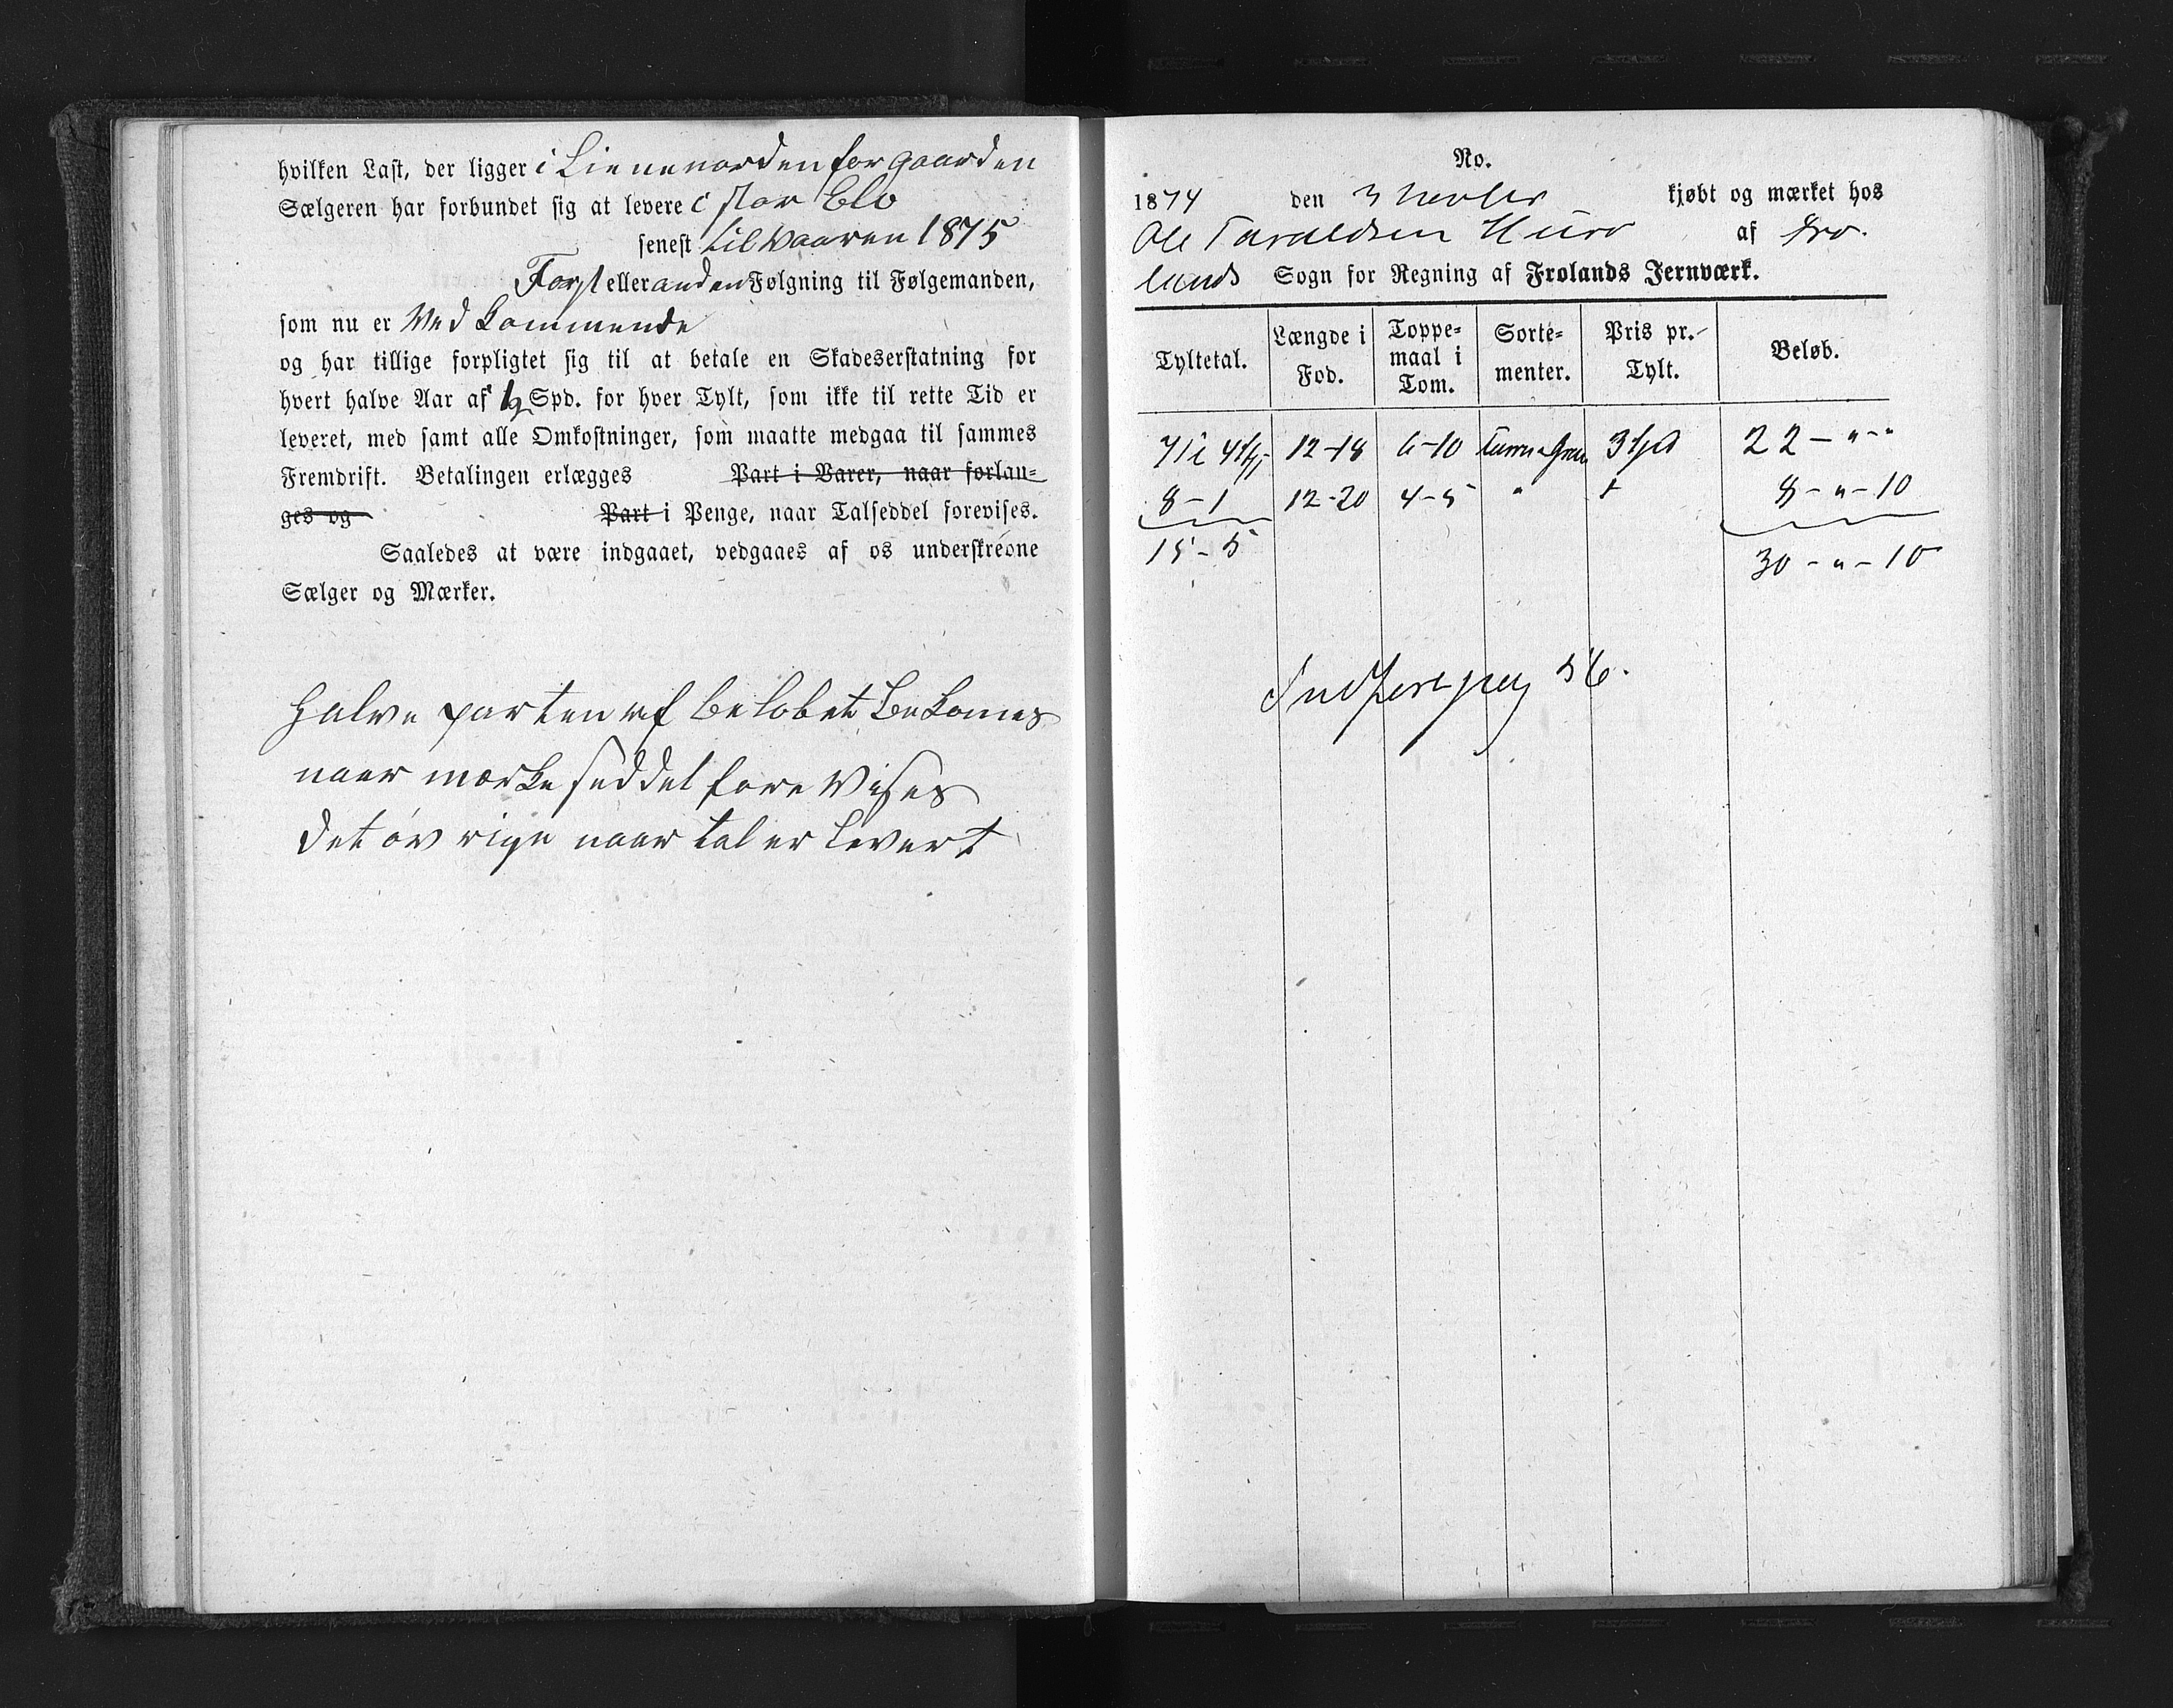 hvilken Last, der ligger i Lienenorden for gaarden
Sælgeren har forbundet sig at levere i stor Elv
senest til Vaaren 1875
Forst eller anden Følgning til Følgemanden,
som nu er Ved Kommende
og har tillige forpligtet sig til at betale en Skadeserstatning for
hvert halve Aar af 1/2 Spd. for hver Tylt, som ikke til rette Tid er
leveret, med samt alle Omkostninger, som maatte medgaa til sammes
Fremdrift. Betalingen erlægges Part i Varer, naar forlan=
ges og Part i Penge, naar Talseddel forevises.
Saaledes at være indgaaet, vedgaaes af os underskrevne
Sælger og Mærker.
Halve parten af belobet be Komes
naar mærke seddel fore Vises
det øv rige naar tal er Levert
No.
1874 den 3 kjøbt og mærket hos
Ole Taraldsen af Fro-
lands Sogn for Regning af Frolands Jernværk.
Tyltetal. Længde i Fod. Toppe= maal i Tom. Sorte= menter. Pris pr. Tylt. Beløb.
12-18 6-10 22 - " - "
8 - 1 12-20 4-5 " 8 - " - 10
15 - 5 30 - " - 10
56.